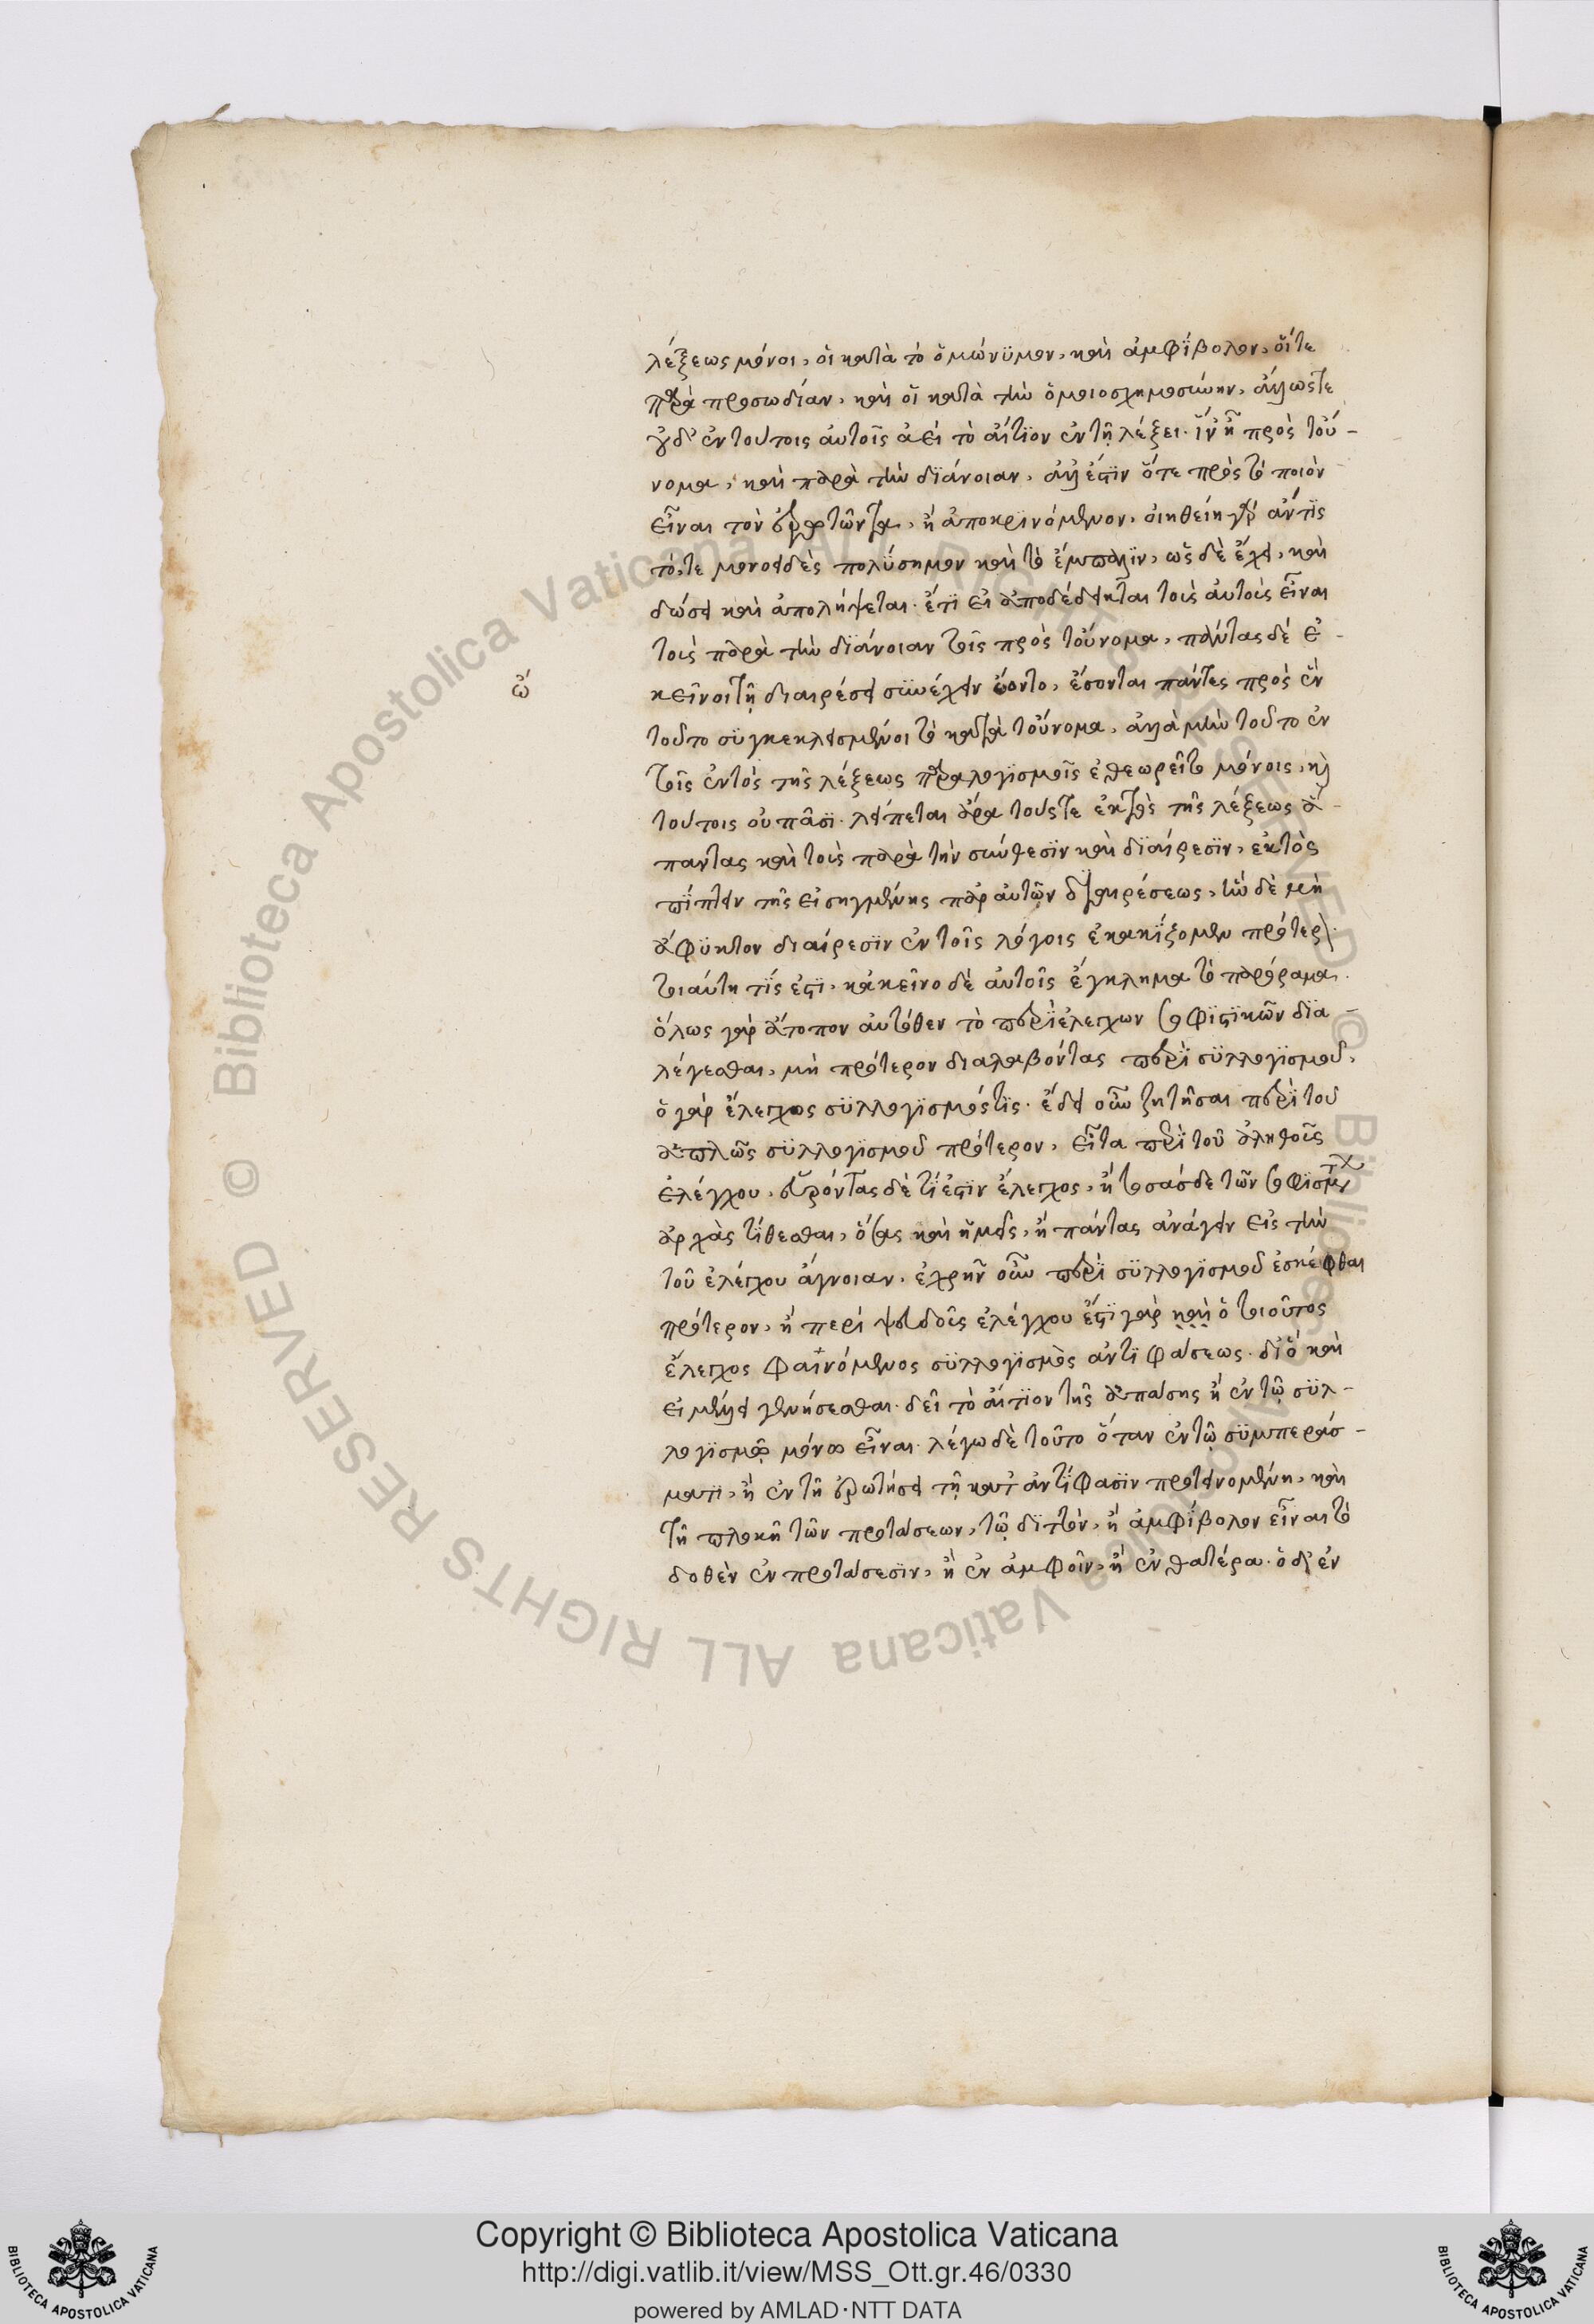 λέξεως μόνοι, οἱ κατὰ τὸ ὁμώνϋμον, καὶ ἀμφίβολον, οἵτε
παρὰ προσωδίαν, καὶ οἱ κατὰ τὴν ὁμοιοσχημοσύνην, ἄλλωςτε
οὐδ' ἐν τούτοις αὐτοῖς ἀεὶ τὸ αἴτϊον ἐν τῇ λέξει. ἵν' ᾖ πρὸς τού-
νομα, καὶ παρὰ τὴν διάνοιαν, ἀλλ' ἔστιν ὅτε πρὸς τὸ ποιὸν
εἶναι τὸν ἐρωτῶντα, ἢ ἀποκρινόμενον, οἰηθείη γὰρ ἄν τϊς
τό, τε μονοειδὲς πολύσημον καὶ τὸ ἔμπαλϊν, ὡς δὲ ἔχει, καὶ
δώσει καὶ ἀπολήψεται. ἔτι εἰ ἀποδέδεικται τοὺς αὐτοὺς εἶναι
τοὺς παρὰ τὴν διάνοιαν τοῖς πρὸς τοὔνομα, πάντας δὲ ἐ-
ὥ
κεῖνοι τῇ διαιρέσει συνέχειν ᾤοντο, ἔσονται πάντες πρὸς ἓν
τοῦτο συγκεκλεισμένοι τὸ κατὰ τοὔνομα, ἀλλὰ μὴν τοῦτο ἐν
τοῖς ἐντὸς τῆς λέξεως παραλογϊσμοῖς ἐθεωρεῖτο μόνοις, καὶ
τούτοις οὐ πᾶσϊ. λείπεται ἄρα τούς τε ἐκτὸς τῆς λέξεως ἅ-
παντας καὶ τοὺς παρὰ τὴν σύνθεσϊν καὶ διαίρεσϊν, ἐκτὸς
πίπτειν τῆς εἰσηγμένης παρ' αὐτῶν διαιρέσεως, ἣν δὲ μὴ
ἄφϋκτον διαίρεσϊν ἐν τοῖς λόγοις ἐκακίζομεν πρότερον.
τοιαύτη τίς ἐστϊ. κἀκεῖνο δὲ αὐτοῖς ἔγκλημα τὸ παρόραμα.
ὅλως γὰρ ἄτοπον αὐτόθεν τὸ περὶ ἐλέγχων σοφϊστϊκῶν δϊα-
λέγεσθαι, μὴ πρότερον διαλαβόντας περὶ σϋλλογϊσμοῦ,
ὁ γὰρ ἔλεγχος σϋλλογϊσμός τϊς. ἔδει οὖν ζητῆσαι περὶ τοῦ
ἁπλῶς σϋλλογϊσμοῦ πρότερον, εἶτα περὶ τοῦ ἀληθοῦς
ἐλέγχου, εὑρόντας δὲ τί ἐστιν ἔλεγχος, ἢ τοσάσδε τῶν σοφϊσμάτων
ἀρχὰς τίθεσθαι, ὅσας καὶ ἡμεῖς, ἢ πάντας ἀνάγειν εἰς τὴν
τοῦ ἐλέγχου ἄγνοιαν. ἐχρῆν οὖν περὶ σϋλλογϊσμοῦ ἐσκέφθαι
πρότερον, ἢ περὶ ψευδοῦς ἐλέγχου ἔστϊ γὰρ καὶ ὁ τοιοῦτος
ἔλεγχος φαινόμενος σϋλλογϊσμὸς ἀντϊφάσεως. διὸ καὶ
εἰ μέλλει γενήσεσθαι. δεῖ τὸ αἴτϊον τῆς ἀπάσης ἢ ἐν τῷ σϋλ-
λογϊσμῷ μόνῳ εἶναι. λέγω δὲ τοῦτο ὅταν ἐν τῷ σϋμπεράσ-
ματι, ἢ ἐν τῇ ἐρωτήσει τῇ κατ' ἀντίφασϊν προτεινομένῃ, καὶ
τῇ πλοκῇ τῶν προτάσεων, τῷ διττὸν, ἢ ἀμφίβολον εἶναι τὸ
δοθὲν ἐν προτάσεσϊν, ἢ ἐν ἀμφοῖν, ἢ ἐν θατέρα. ὁ δ' ἐν
Copyright © Biblioteca Apostolica Vaticana
http://digi.vatlib.it/view/MSS_Ott.gr.46/0330
powered by AMLAD·NTT DATA